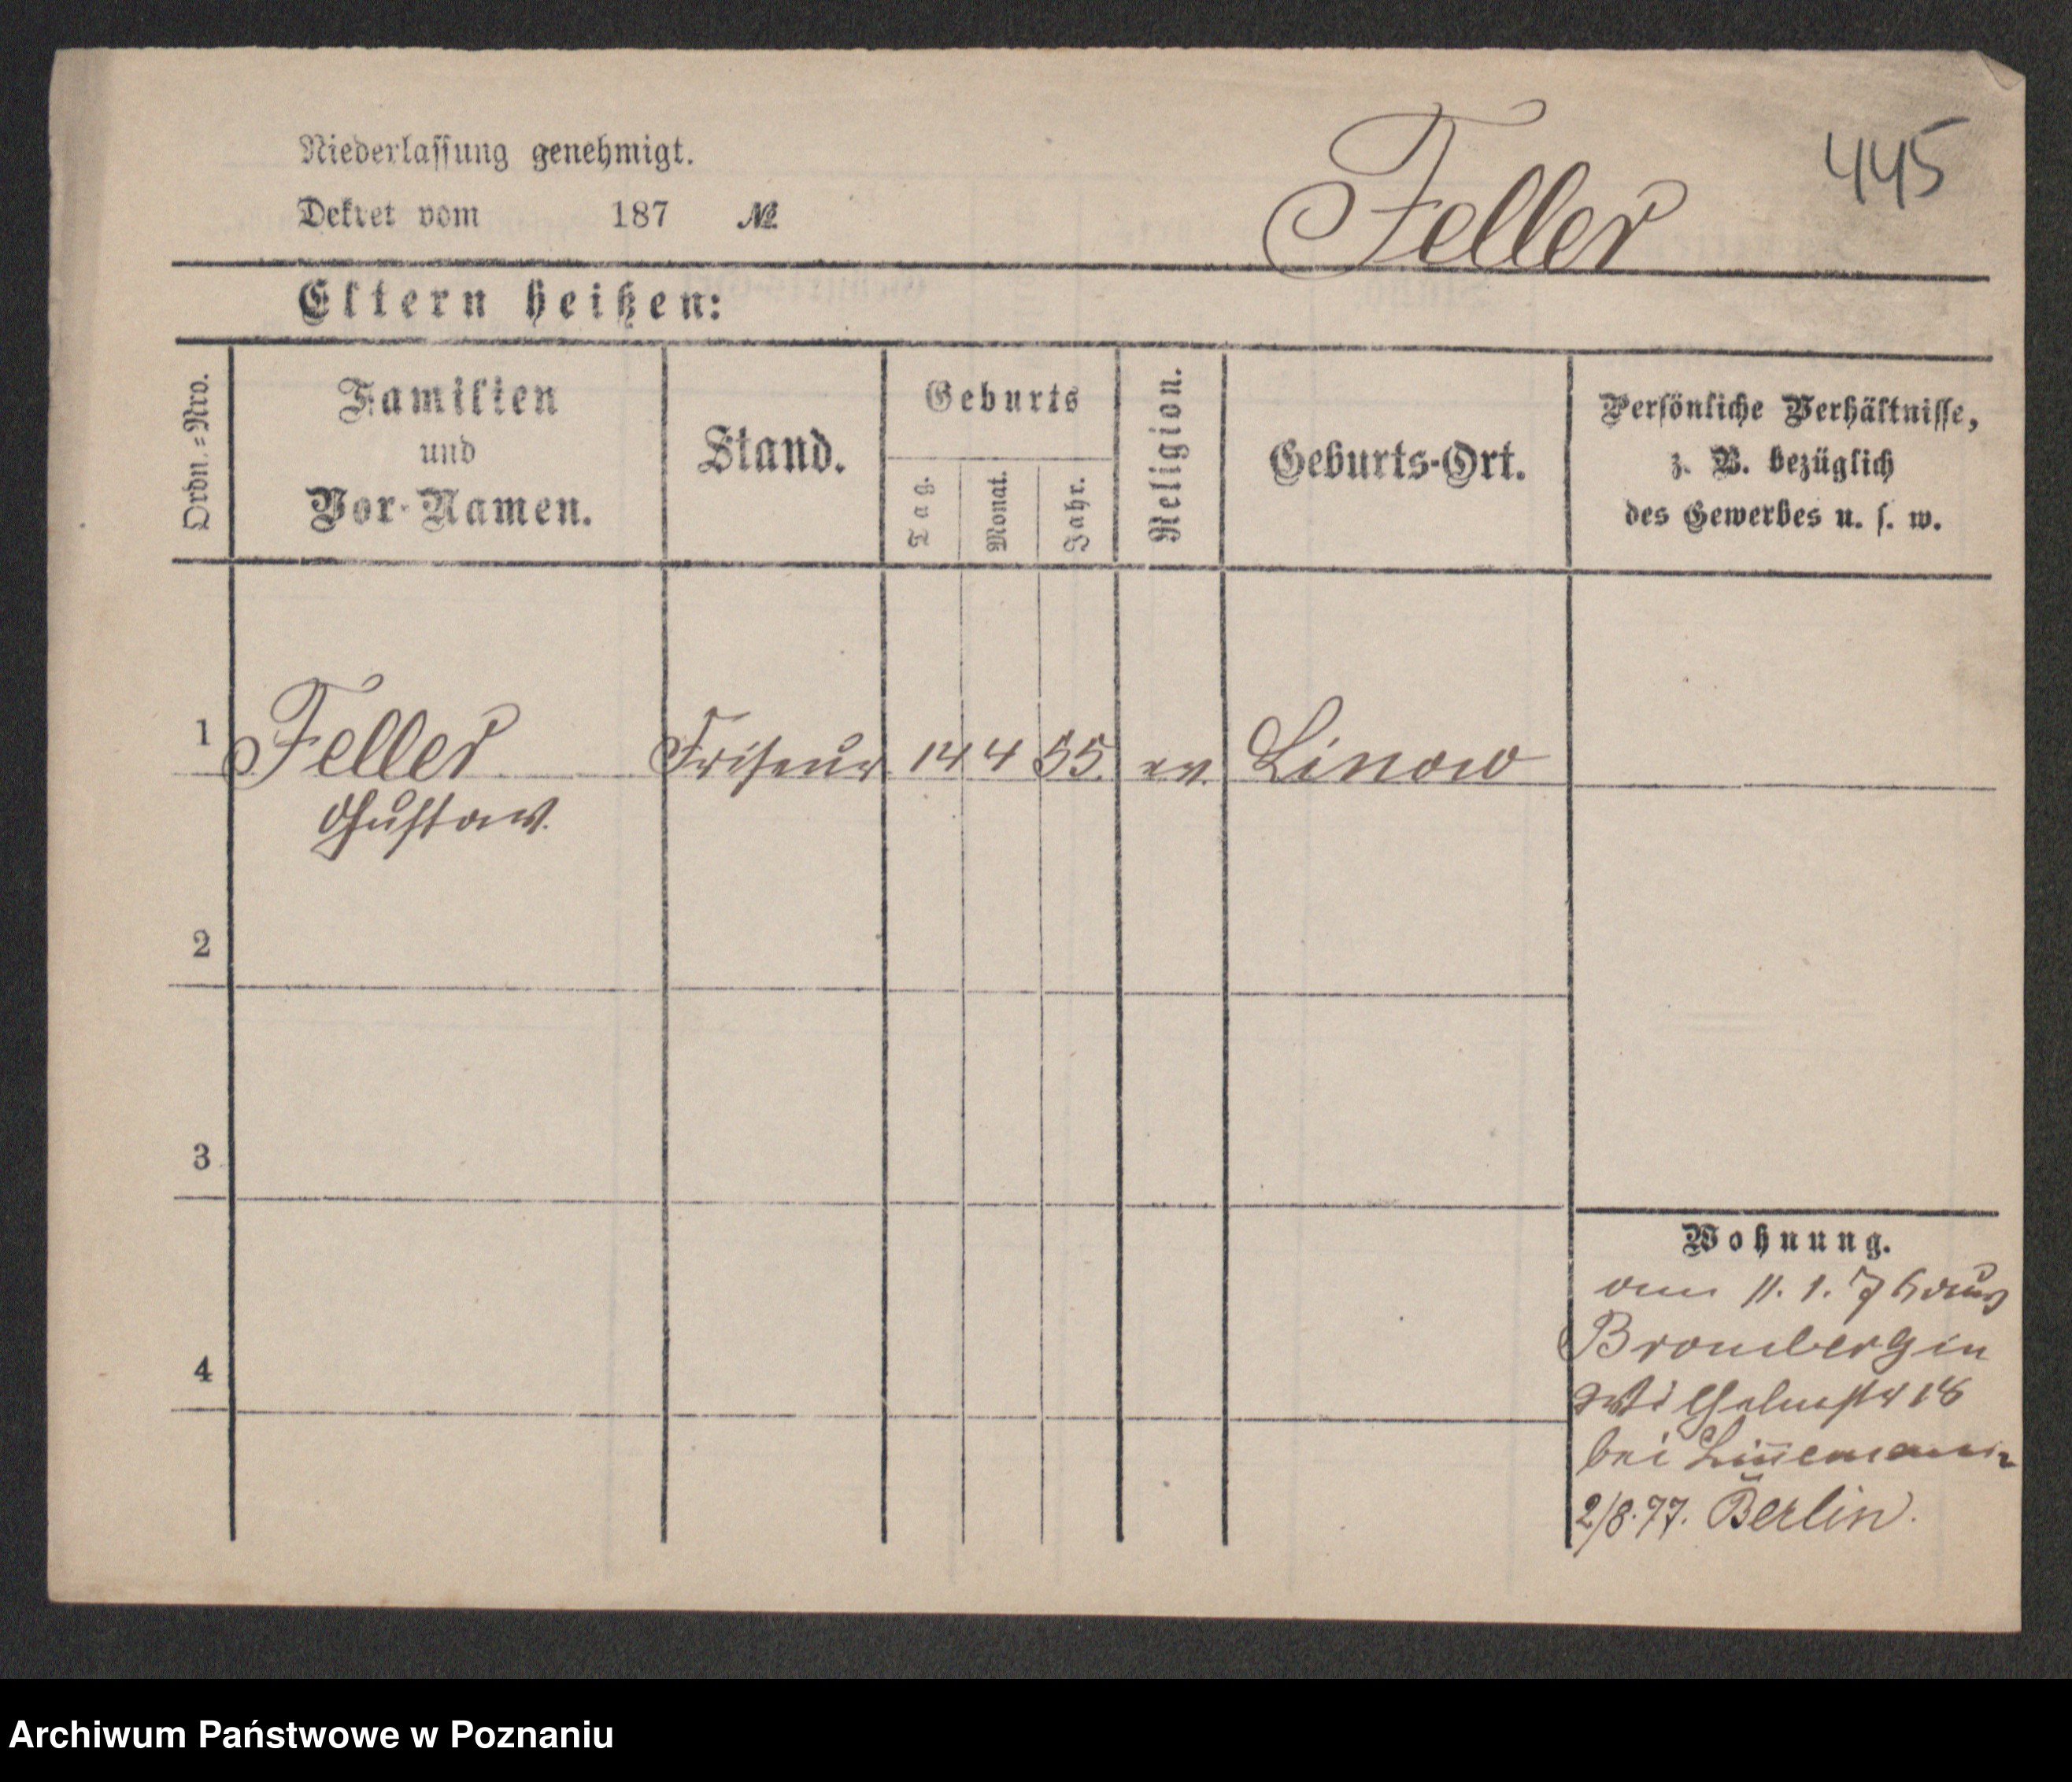 Niederlassung genehmigt.
Dekret vom 187 №
Feller
445
Eltern heißen:
Ordn.=Nro.
Familien
und
Vor-Namen.
Stand.
Geburts
Tag.
Monat.
Jahr.
Religion.
Geburts-Ort.
Persönliche Verhältnisse,
z. B. bezüglich
des Gewerbes u. s. w.
1 Feller Friseur 14 4 55. ev. Linow
Gustav.
2
3
4
Wohnung.
am 11. 1. 76 aus
Bromberg in
Wilhelmstr 18
bei Linemann
2/8.77. Berlin.
Archiwum Państwowe w Poznaniu